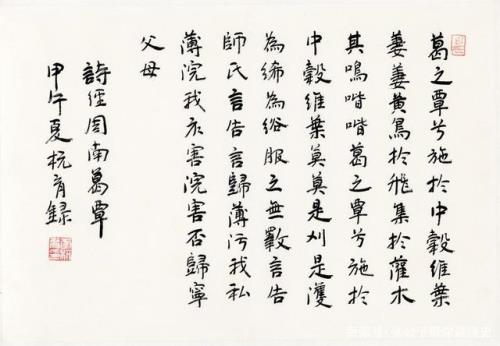 葛之覃兮施於中穀維葉
萋萋黄鳥於飛集於灌木
其鳴喈喈葛之覃兮施於
中穀維葉莫莫是刈是濩
為絺為綌服之無斁言告
師氏言告言歸薄污我私
薄浣我衣害浣害否歸寧
父母
詩經周南葛覃
甲午夏杭育録